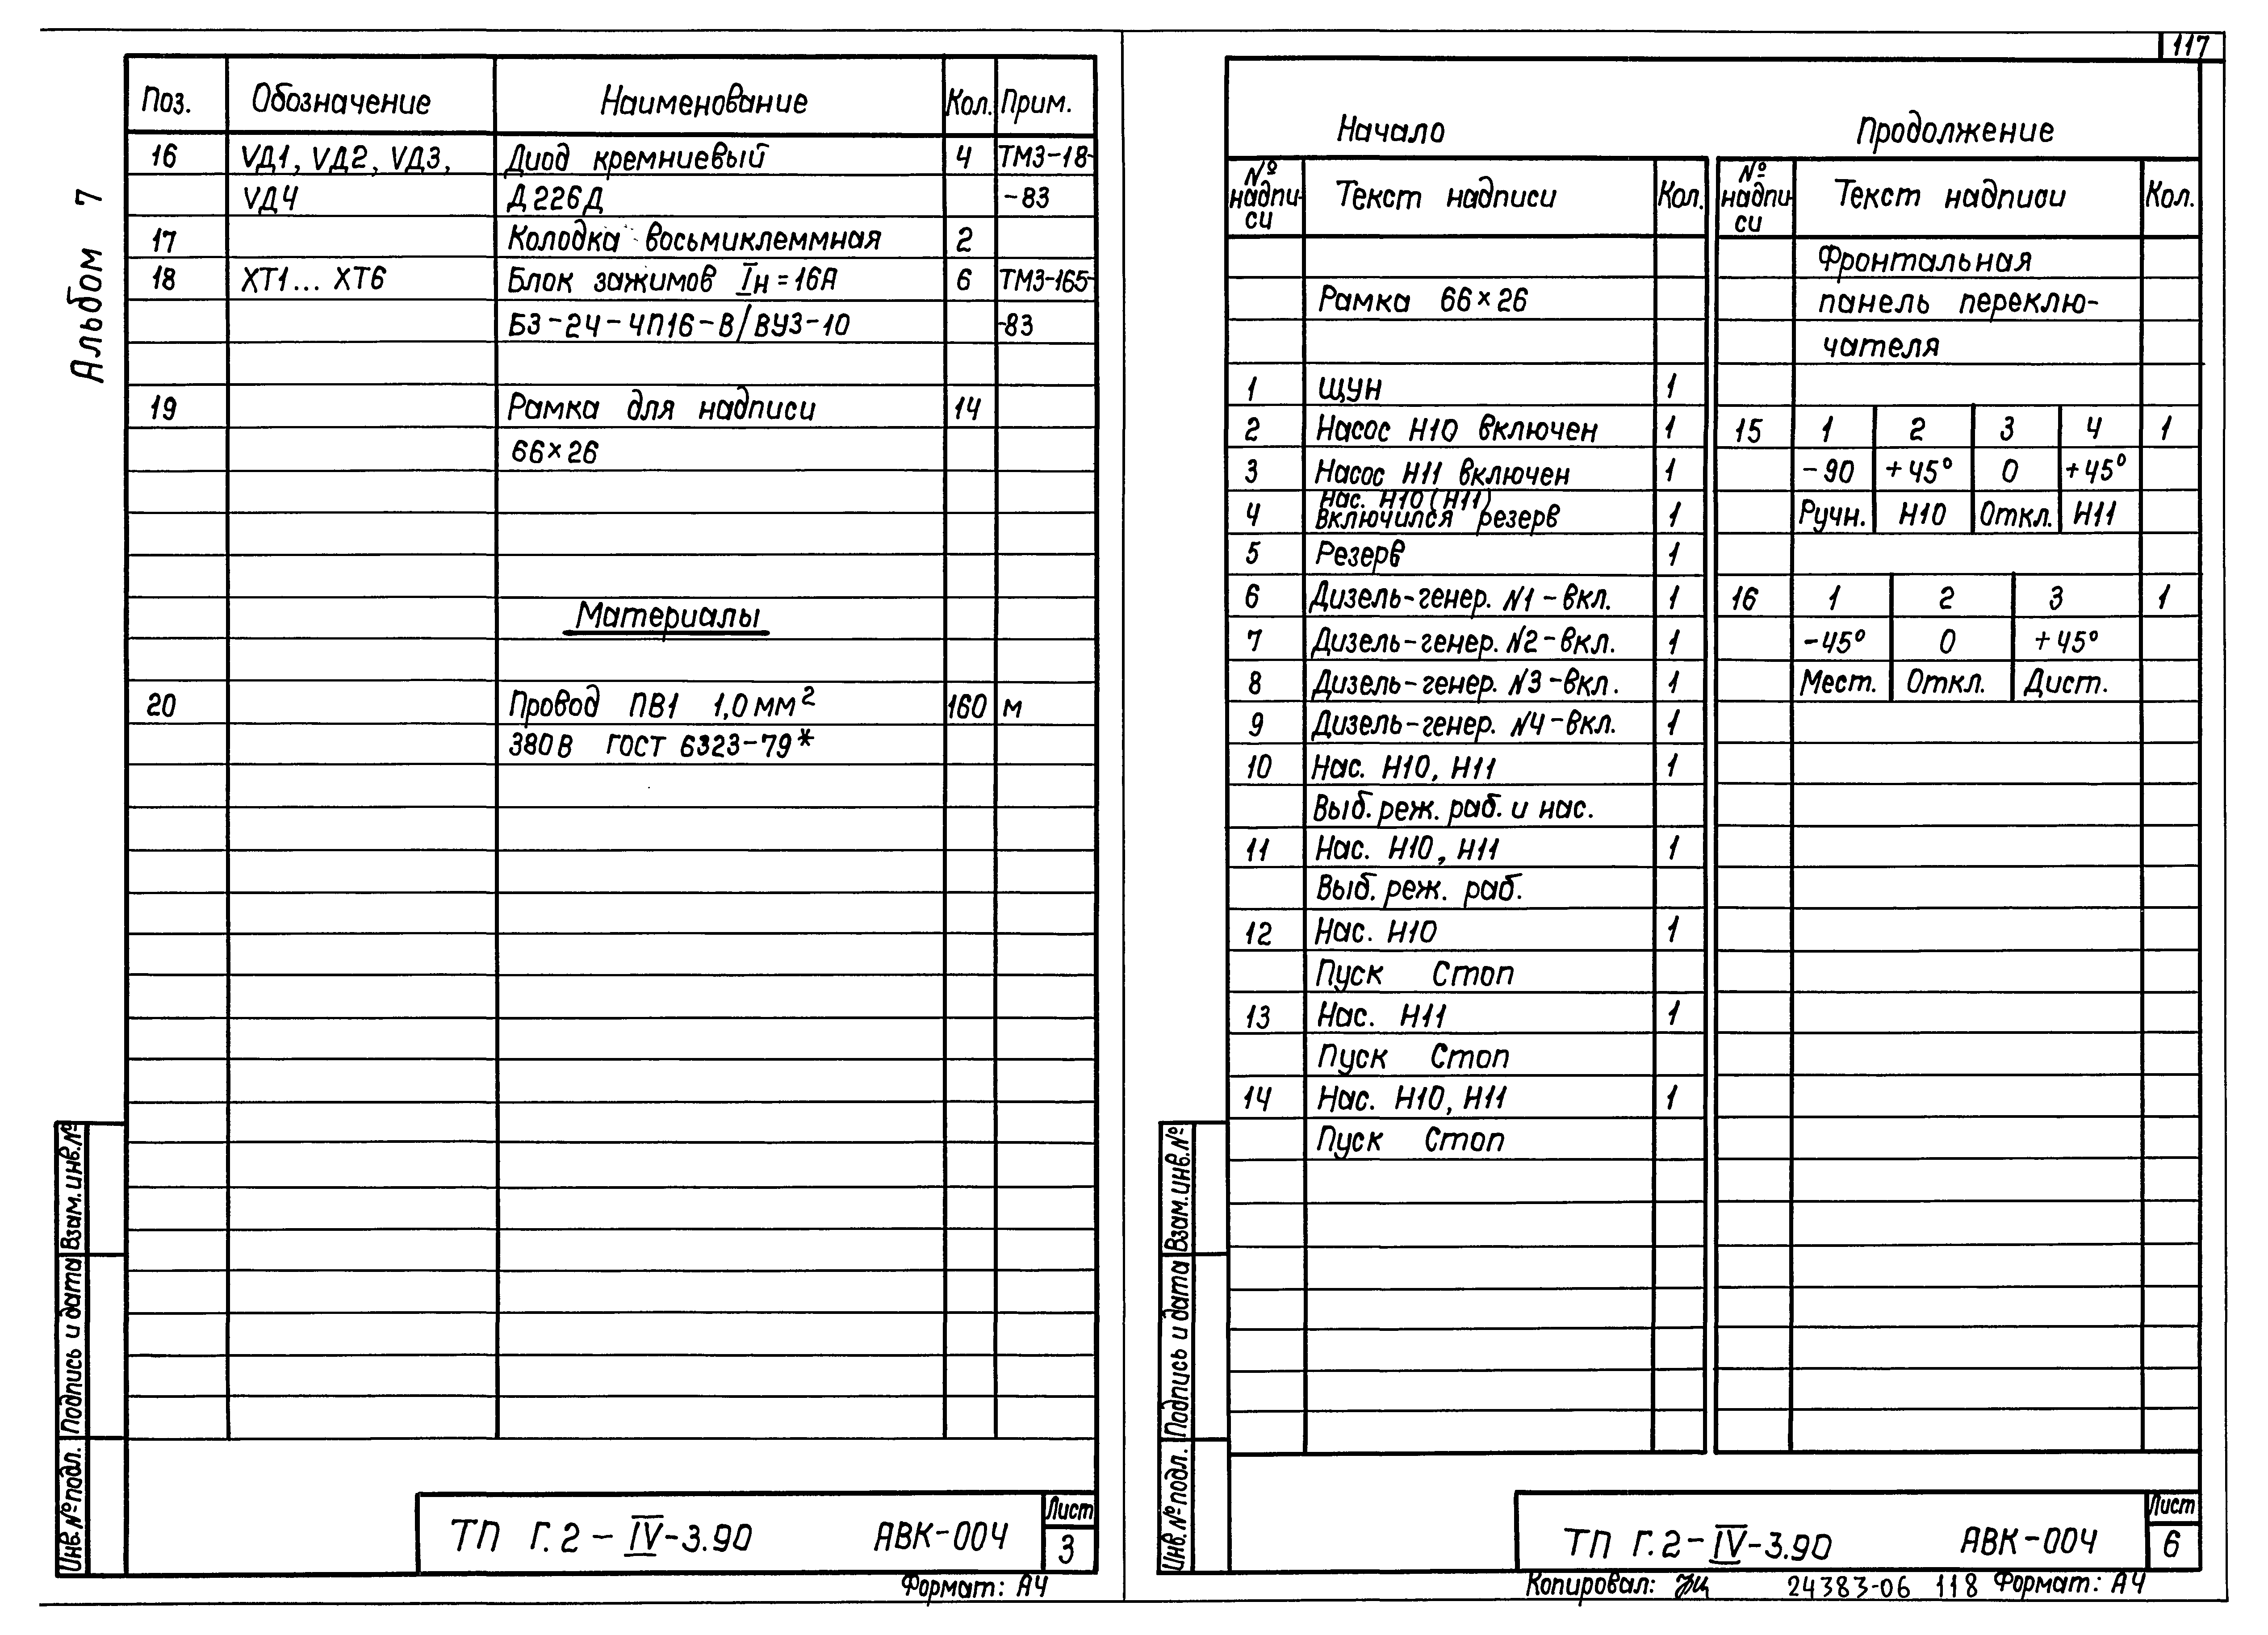 117
Альбом 7
Поз. Обозначение Наименование Кол. Прим.
16 VД1, VД2, VД3, Диод кремниевый 4 ТМ3-18-
VД4 Д226Д -83
17 Колодка восьмиклеммная 2
18 ХТ1... ХТ6 Блок зажимов Iн=16А 6 ТМ3-165-
Б3-24-4П16-В/ВУ3-10 -83
19 Рамка для надписи 14
66×26
Материалы
20 Провод ПВ1 1,0 мм² 160 м
380В ГОСТ 6323-79*
Взам.инв.№
Подпись и дата
Инв.№подл.
ТП Г.2-IV-3.90 АВК-004 Лист
3
Формат: А4
Начало
№ надпи- си Текст надписи Кол.
Рамка 66×26
1 ЩУН 1
2 Насос Н10 включен 1
3 Насос Н11 включен 1
Нас. Н10 (Н11)
4 включился резерв 1
5 Резерв 1
6 Дизель-генер. N1-вкл. 1
7 Дизель-генер. N2-вкл. 1
8 Дизель-генер. N3-вкл. 1
9 Дизель-генер. N4-вкл. 1
10 Нас. Н10, Н11 1
Выб. реж. раб. и нас.
11 Нас. Н10, Н11 1
Выб. реж. раб.
12 Нас. Н10 1
Пуск Стоп
13 Нас. Н11 1
Пуск Стоп
14 Нас. Н10, Н11 1
Пуск Стоп
Продолжение
№ надпи- си Текст надписи Кол.
Фронтальная
панель переклю-
чателя
15 1 2 3 4 1
-90 +45° 0 +45°
Ручн. Н10 Откл. Н11
16 1 2 3 1
-45° 0 +45°
Мест. Откл. Дист.
Взам.инв.№
Подпись и дата
Инв.№подл.
ТП Г.2-IV-3.90 АВК-004 Лист
6
Копировал: 24383-06 118 Формат: А4